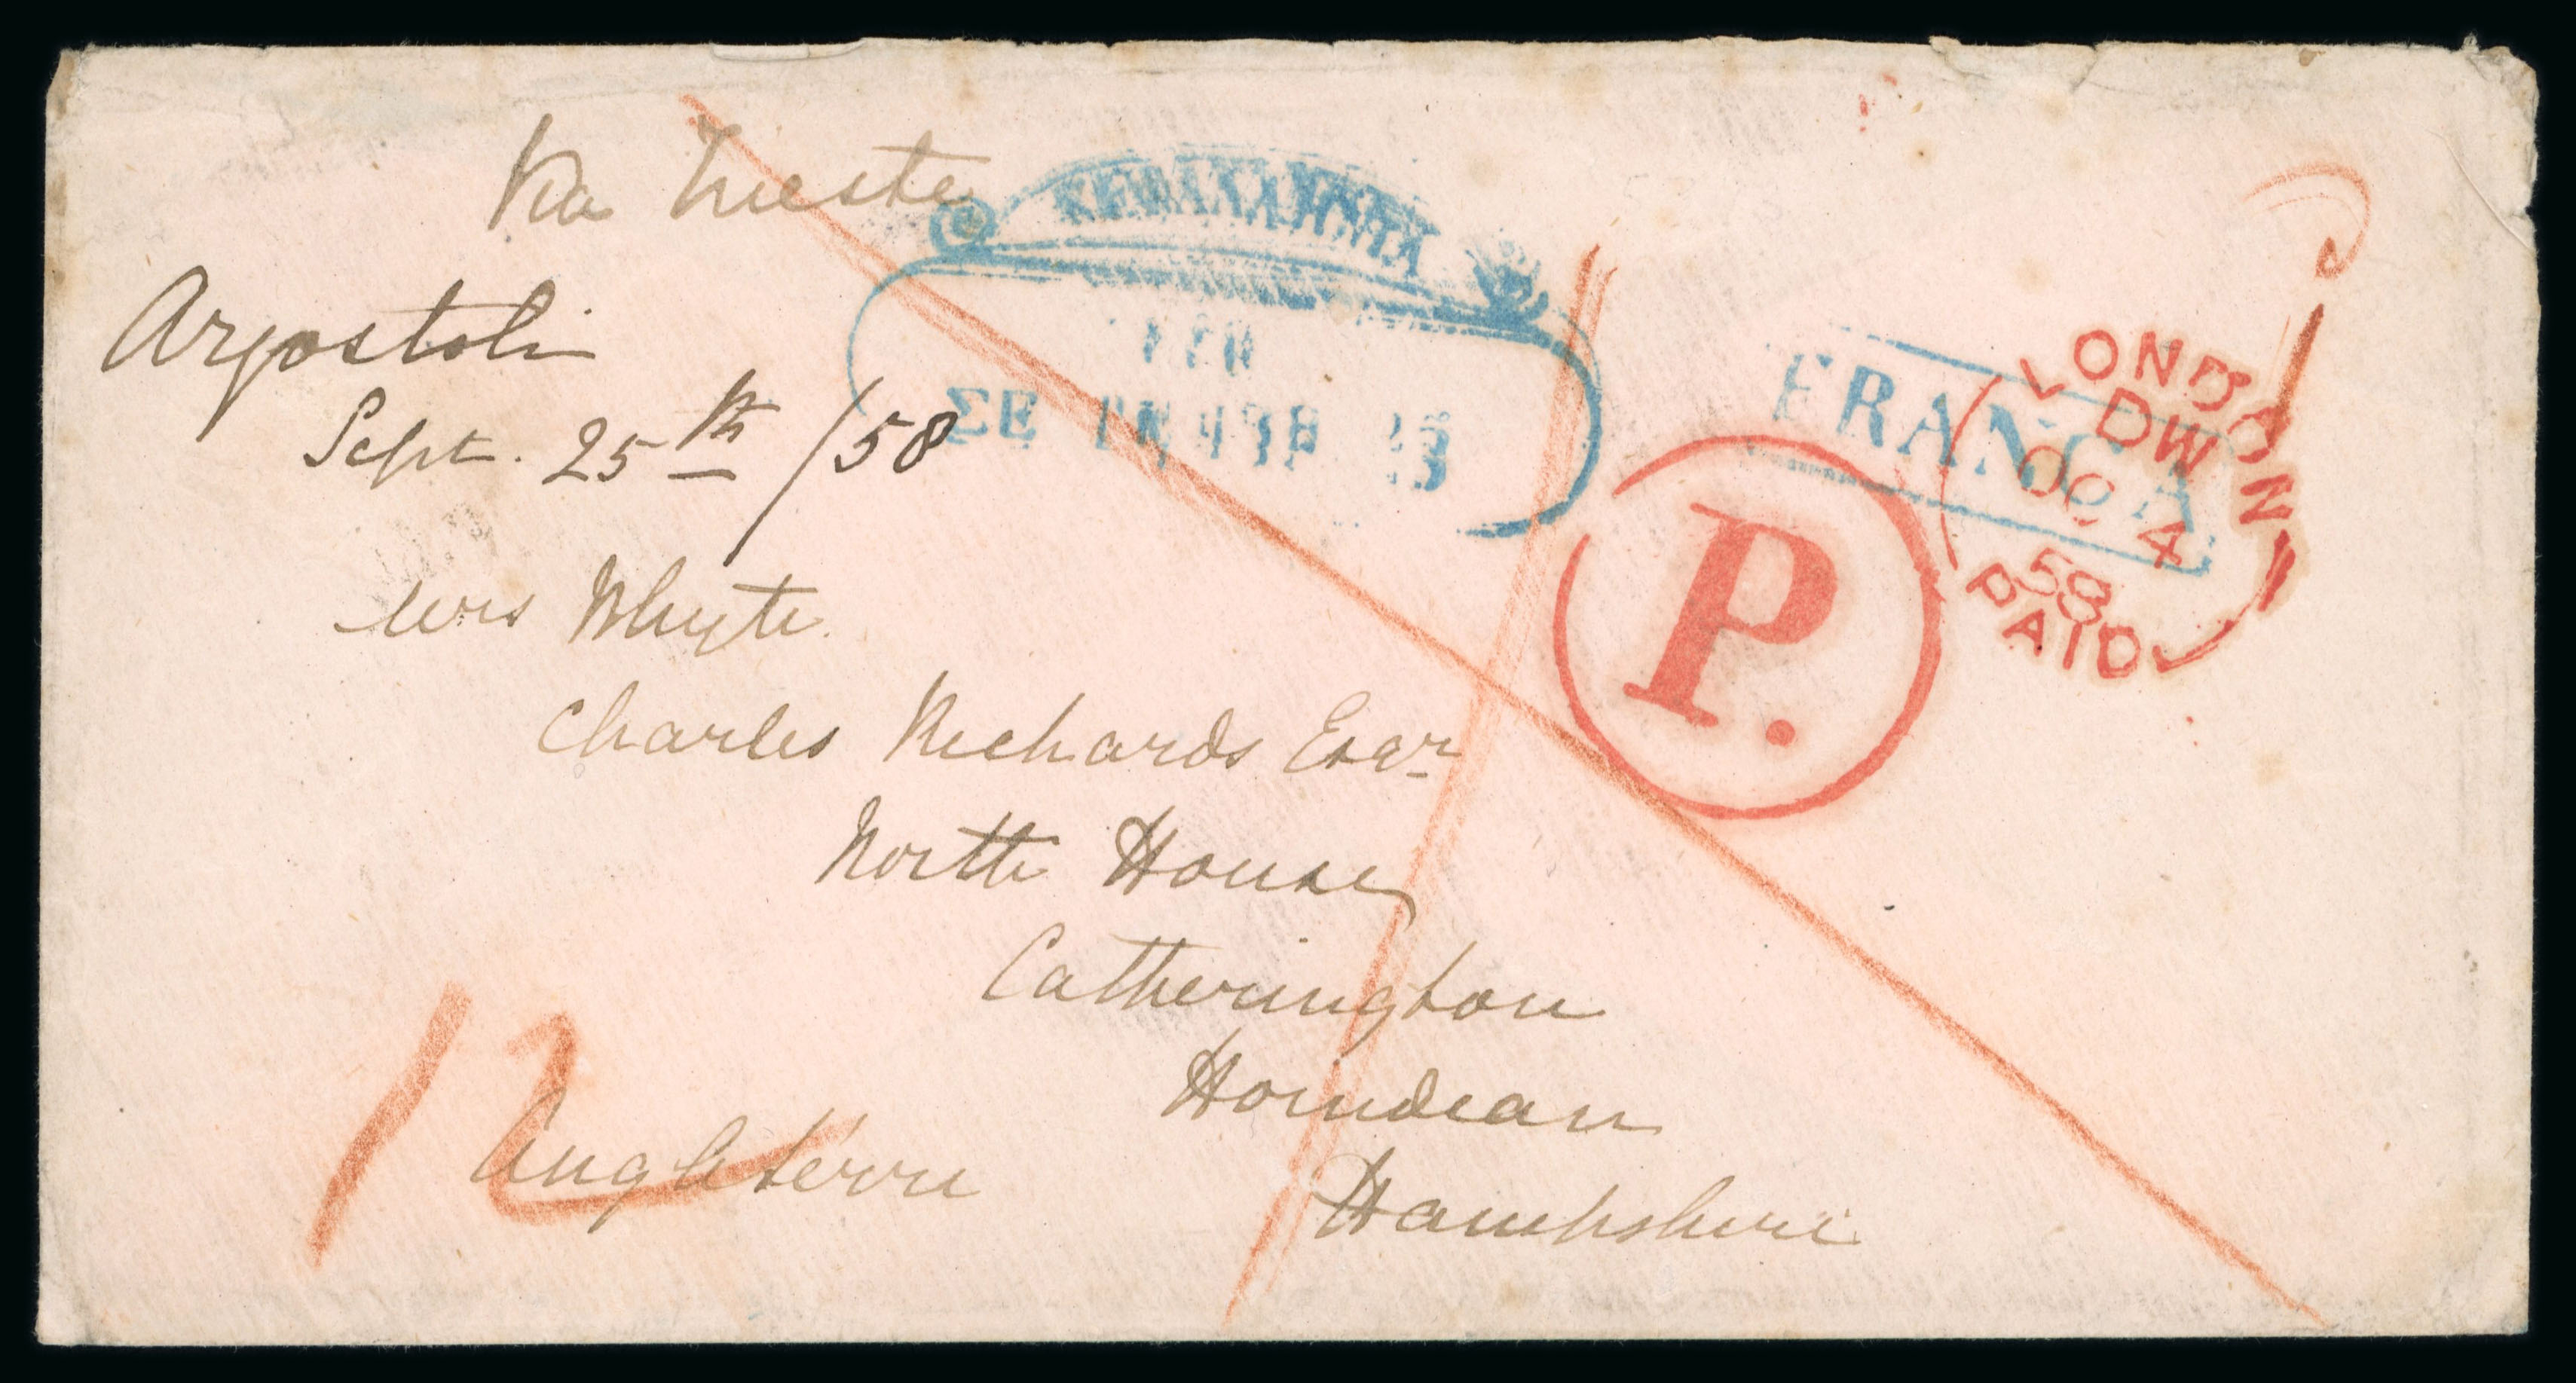 Via Trieste
Argostoli
Sept. 25th /58
ΚΕΦΑΛΛΗΝΙΑ
ΣΕ
FRANCA
LONDON
DW
OC 4
58
PAID
P.
Mrs Whyte
Charles Richards Esqr
North House
Catherington
Horndean
Hampshire
Angleterre
12